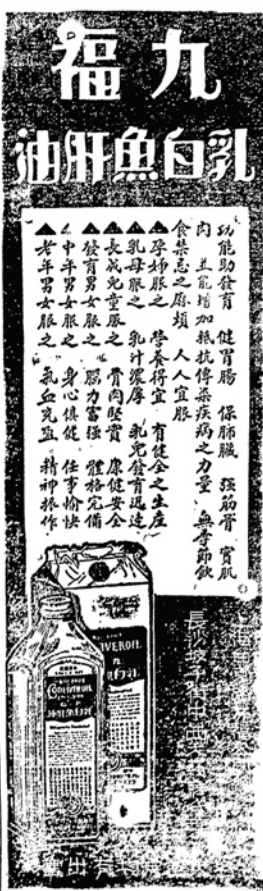 九福
乳白魚肝油
功能助發育 健胃腸 保肺臟 強筋骨 實肌
肉 並能增加抵抗傳染疾病之力量 無季節飲
食禁忌之麻煩 人人宜服
▲孕婦服之 營養得宜 有健全之生產
▲乳母服之 乳汁濃厚 乳兒發育迅速
▲長成兒童服之 骨肉堅實 康健安全
▲發育男女服之 腦力富强 體格完備
▲中年男女服之 身心俱健 任事愉快
▲老年男女服之 氣血充盈 精神振作